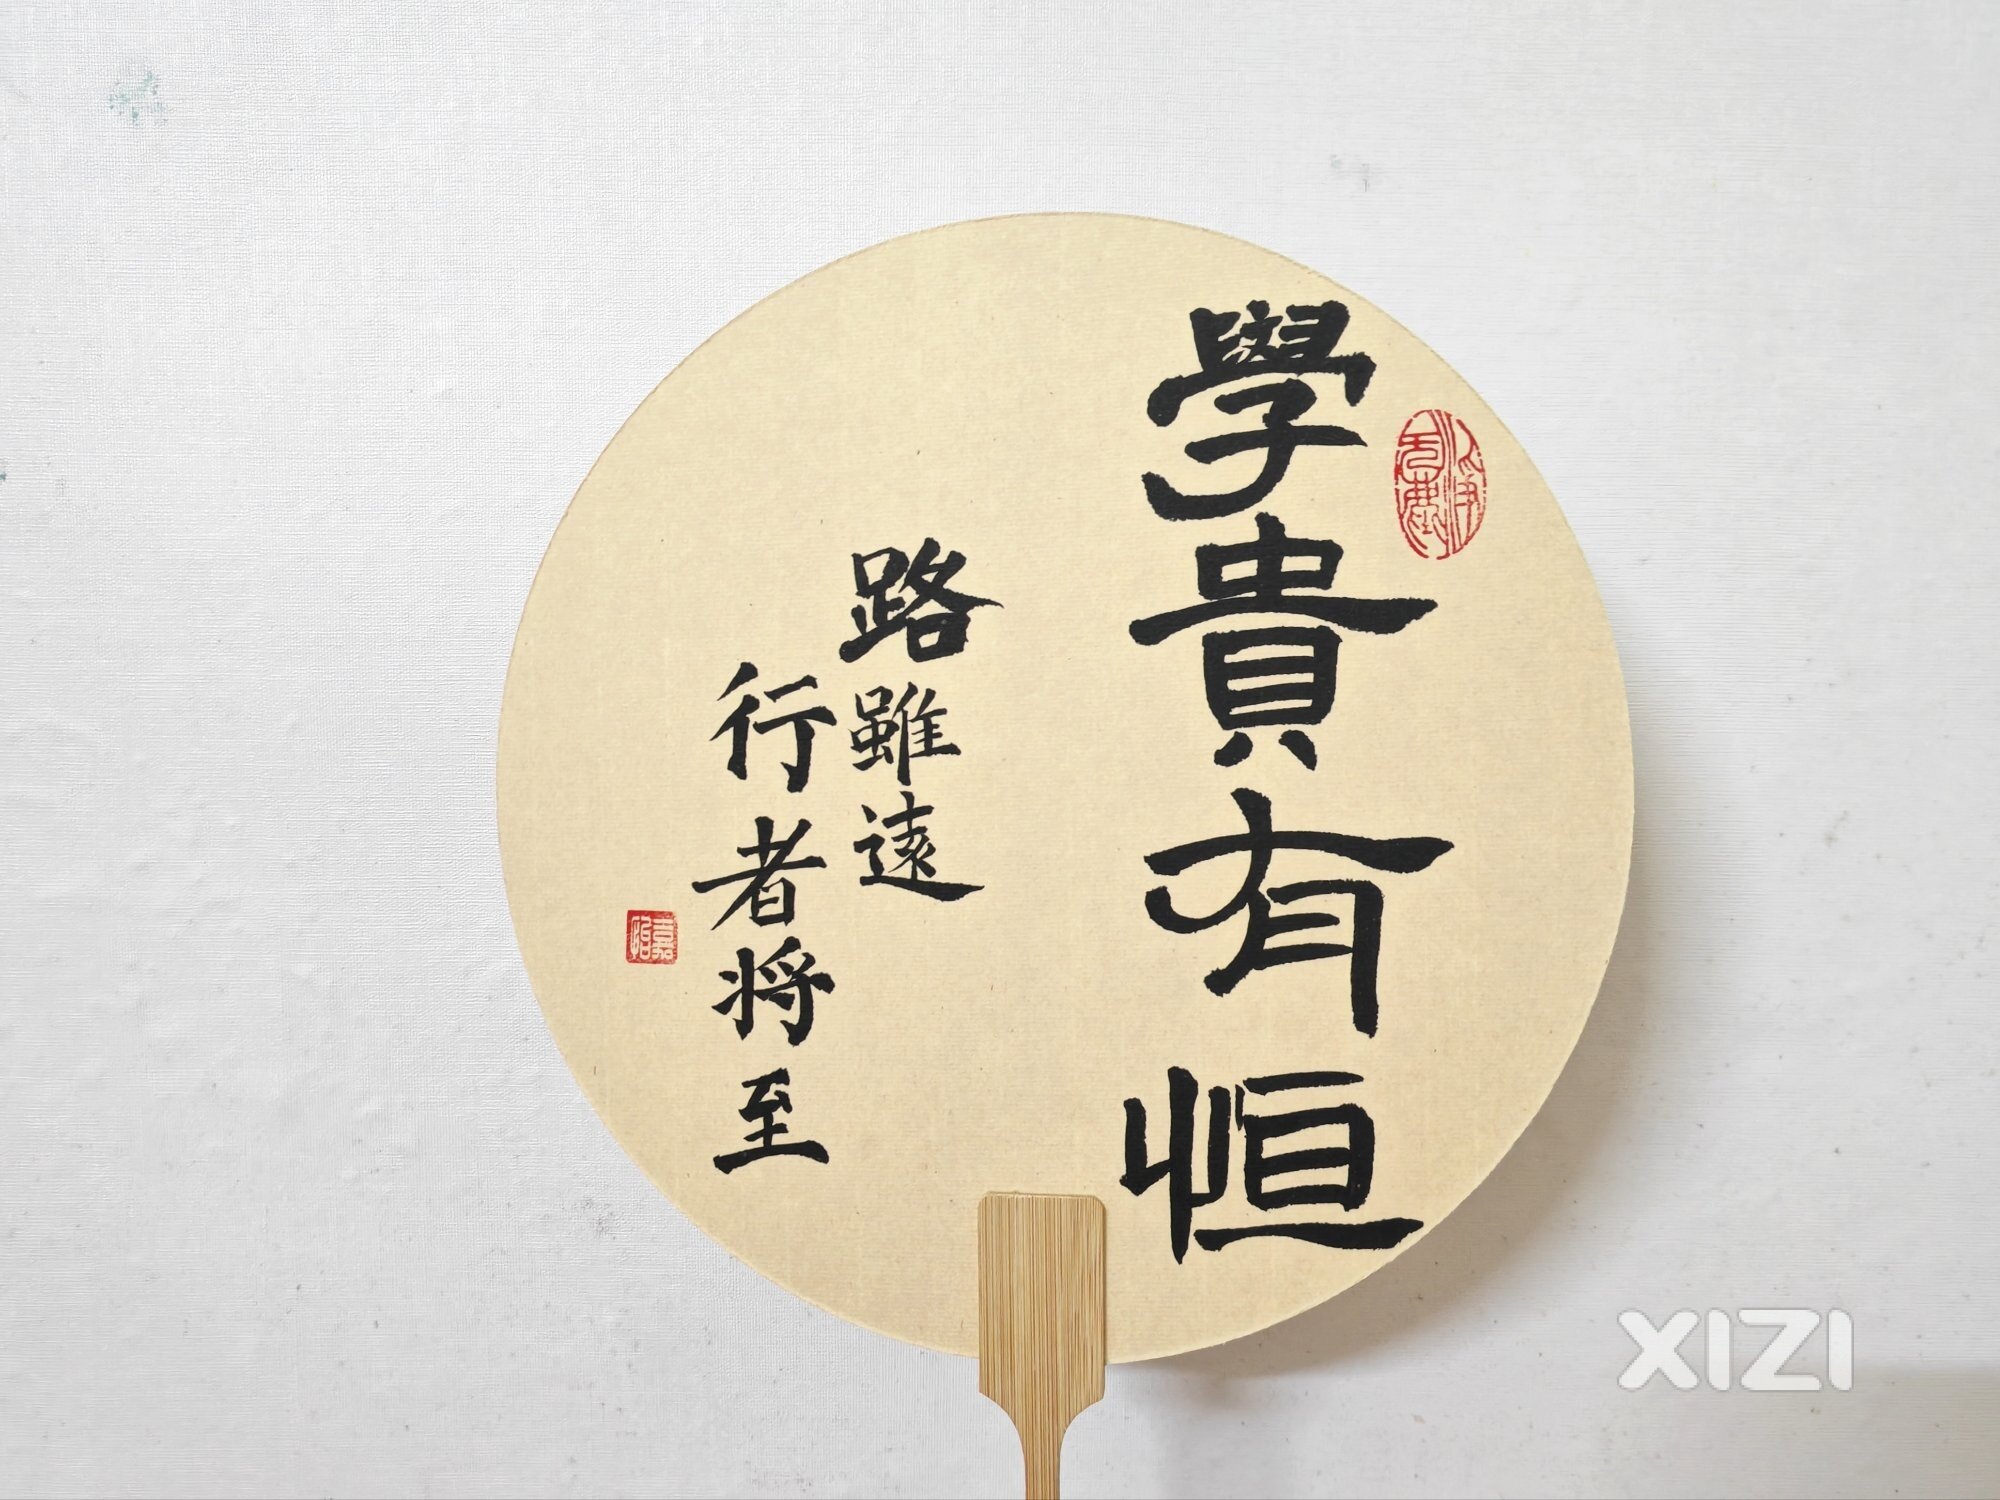 學貴有恒
路雖遠
行者将至
XIZI